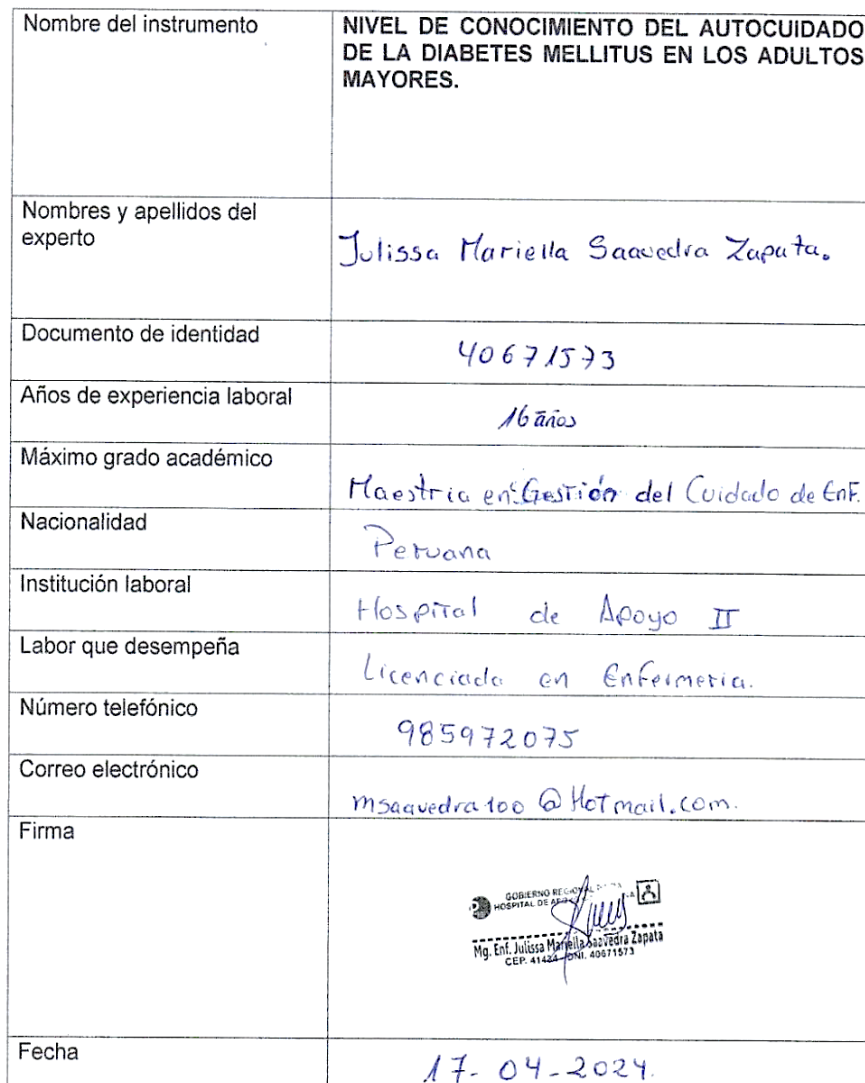 Nombre del instrumento
NIVEL DE CONOCIMIENTO DEL AUTOCUIDADO
DE LA DIABETES MELLITUS EN LOS ADULTOS
MAYORES.
Nombres y apellidos del
experto
Julissa Mariella Saavedra Zapata.
Documento de identidad
40671573
Años de experiencia laboral
16 años
Máximo grado académico
Maestria en Gestión del Cuidado de Enf.
Nacionalidad
Peruana
Institución laboral
Hospital de Apoyo II
Labor que desempeña
Licenciada en Enfermeria.
Número telefónico
985972075
Correo electrónico
msaavedra100@Hotmail.com.
Firma
GOBIERNO REGIONAL
HOSPITAL DE
Mg. Enf. Julissa Mariella Saavedra Zapata
CEP. DNI. 40671573
Fecha
17-04-2024.